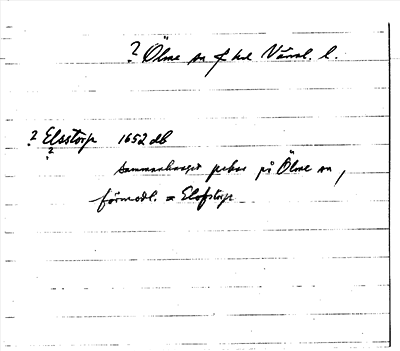 ? Ölme sn f hd Värml. l.
? Elsstorp 1652 db
?
sammanhanget pekar på Ölme sn,
förmodl. = Elofstorp